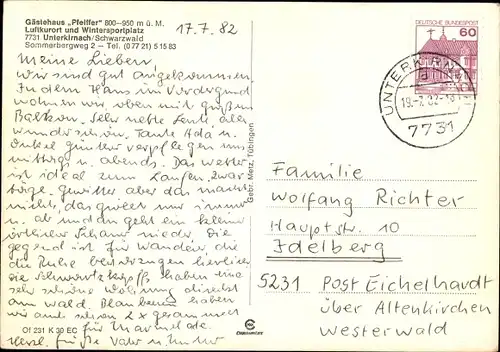 Gästehaus „Pfeiffer“ 800–950 m ü. M.
Luftkurort und Wintersportplatz
7731 Unterkirnach/Schwarzwald
Sommerbergweg 2 – Tel. (0 77 21) 5 15 83
17.7.82
Meine Lieben!
Wir sind gut angekommen.
In dem Haus im Vordergrund
wohnen wir, oben mit großem
Balkon. Sehr nette Leute alles
wunderschön. Tante Ada u.
Onkel Günter verpflegen uns
mittags u. abends. Das Wetter
ist ideal zum Laufen. Zwar
Gewitter aber das macht
nichts, das immer
u. ab und an geht ein kleiner
örtlicher Schauer nieder. Die
Gegend ist für Wanderer, die
die Ruhe bevorzugen herrlich.
die haben eine
sehr schöne Wohnung direkt
am Wald. Blaubeeren haben
wir auch schon 2 x gesammelt
für Marmelade.
Herzl. Grüße Vater u. Mutter
Of 231 K 30 EC
Gebr. Metz, Tübingen
DEUTSCHE BUNDESPOST
60
UNTERKIRNACH
7731
Familie
Wolfgang Richter
Hauptstr. 10
Idelberg
5231 Post Eichelhardt
über Altenkirchen
Westerwald